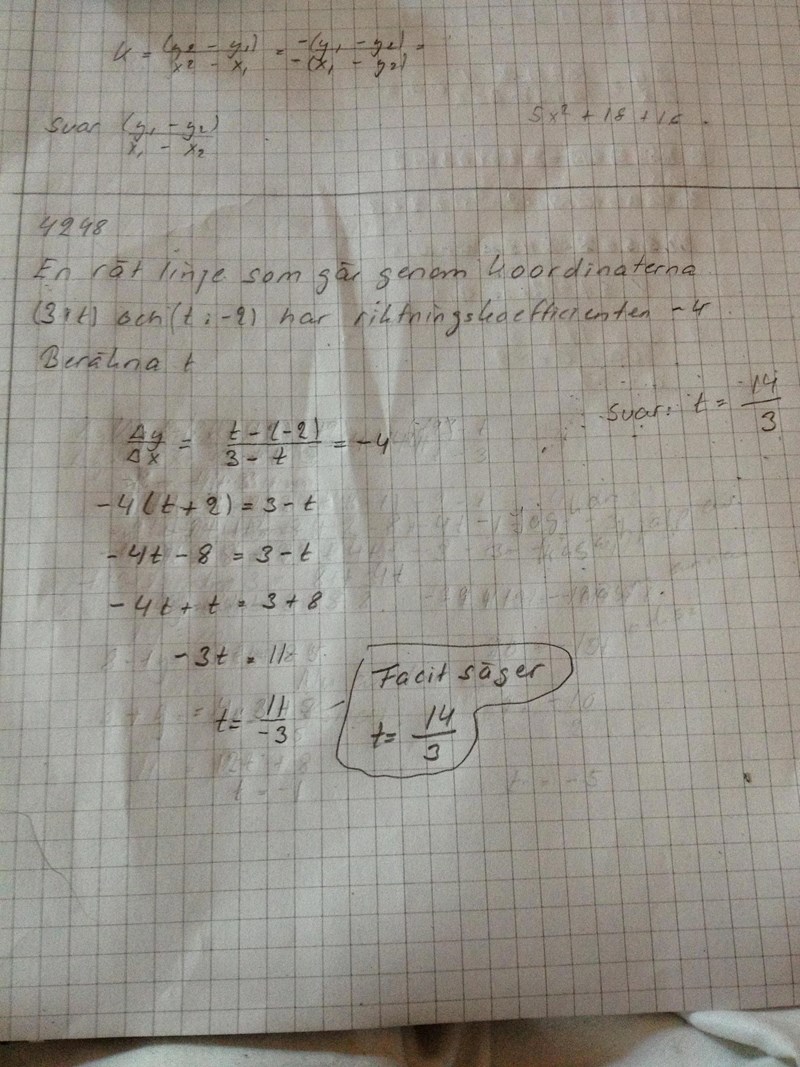 k = (y2 - y1) / x2 - x1 = -(y1 - y2) / -(x1 - y2) =
Svar (y1 - y2) / x1 - x2
5x² + 18 +
4248
En rät linje som går genom koordinaterna
(3;t) och (t;-2) har riktningskoefficienten -4.
Beräkna t
Svar: t = 14/3
Δy/Δx = t-(-2) / 3-t = -4
-4(t+2) = 3-t
-4t-8 = 3-t
-4t+t = 3+8
-3t = 11
t = 11/-3
Facit säger
t = 14/3